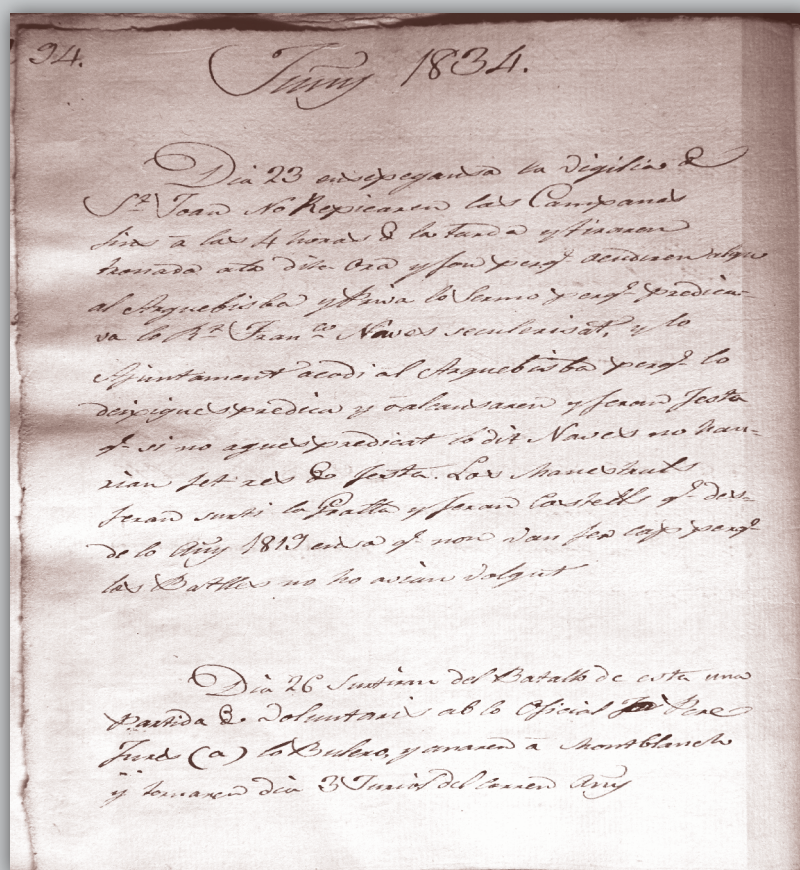 94.
Juñy 1834.
Dia 23 en sepegansa la vigilia de
Sn. Joan No Repicaren las Campanas
fins a las 4 horas de la tarda y tiraren
tronada a la dita Ora y fou perq. acudiren
al Arquebisba y priva lo Sermo perq. predica-
va lo Rt. Franco. Naves seculerisat, y lo
Ajuntament acudi al Arquebisba perq. lo
deixigues predica y o alcansaren y feran festa
q. si no agues predicat lo dit Naves no hau-
rian fet res de festa. Los Manestrals
feran surti la Gralla y feran Castells q. des-
de lo Añy 1819 ensa q. non van fer cap perq.
los Batlles no ho avian volgut
Dia 26 Surtiran del Batallo de esta una
Partida de Voluntaris ab lo Oficial Pere
(a) lo Bulero, y anaren a Montblanch
y tornaren dia 3 Juriol del corren Añy